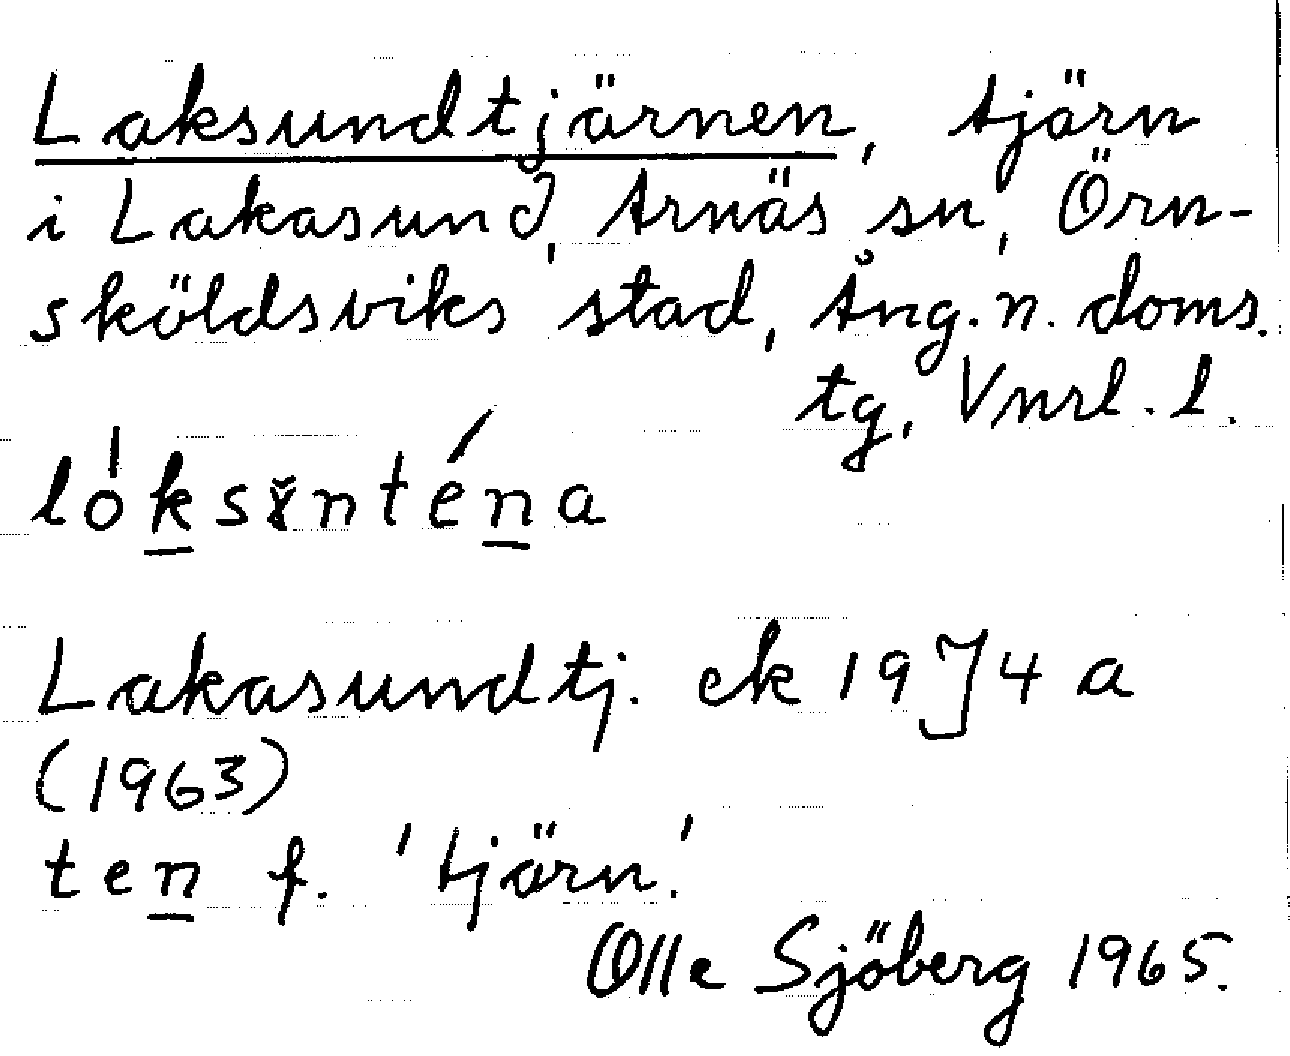 Laksundtjärnen, tjärn
i Lakasund, Arnäs sn, Örn-
sköldsviks stad, Ång. n. doms.
tg, Vnrl. l.
Lakasundtj. ek 19J4 a
(1963)
ten f. 'tjärn.'
Olle Sjöberg 1965.